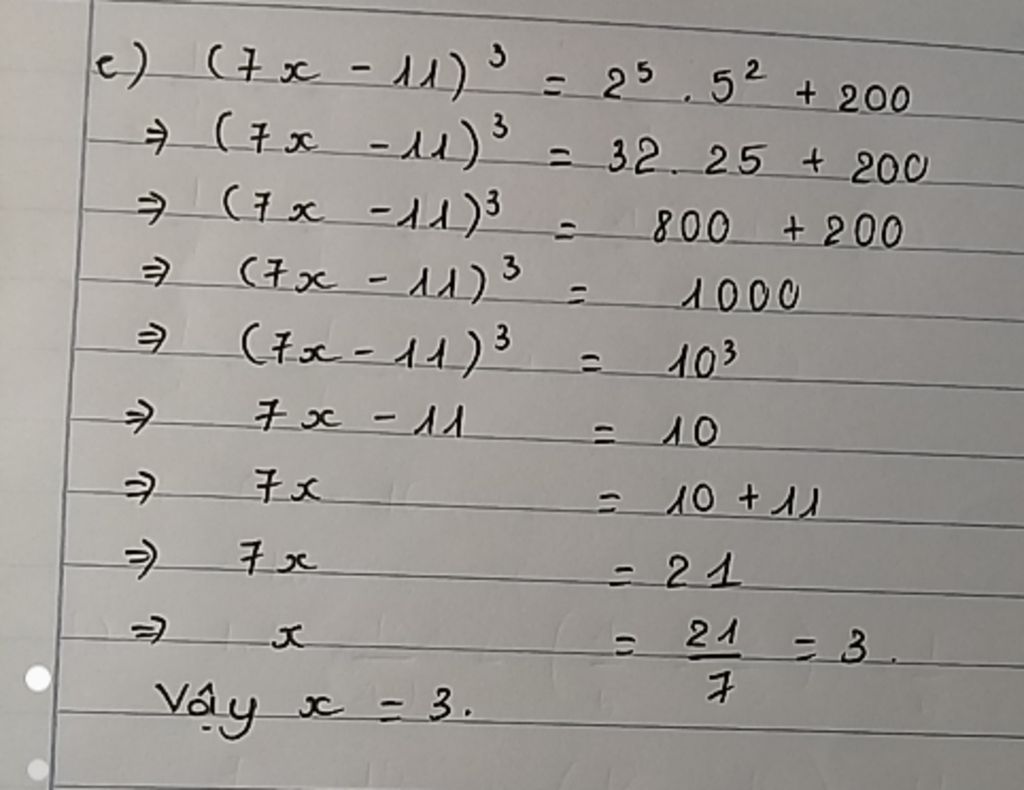 c) (7x - 11)³ = 2⁵ . 5² + 200
⇒ (7x - 11)³ = 32. 25 + 200
⇒ (7x - 11)³ = 800 + 200
⇒ (7x - 11)³ = 1000
⇒ (7x - 11)³ = 10³
⇒ 7x - 11 = 10
⇒ 7x = 10 + 11
⇒ 7x = 21
⇒ x = 21/7 = 3.
Vậy x = 3.